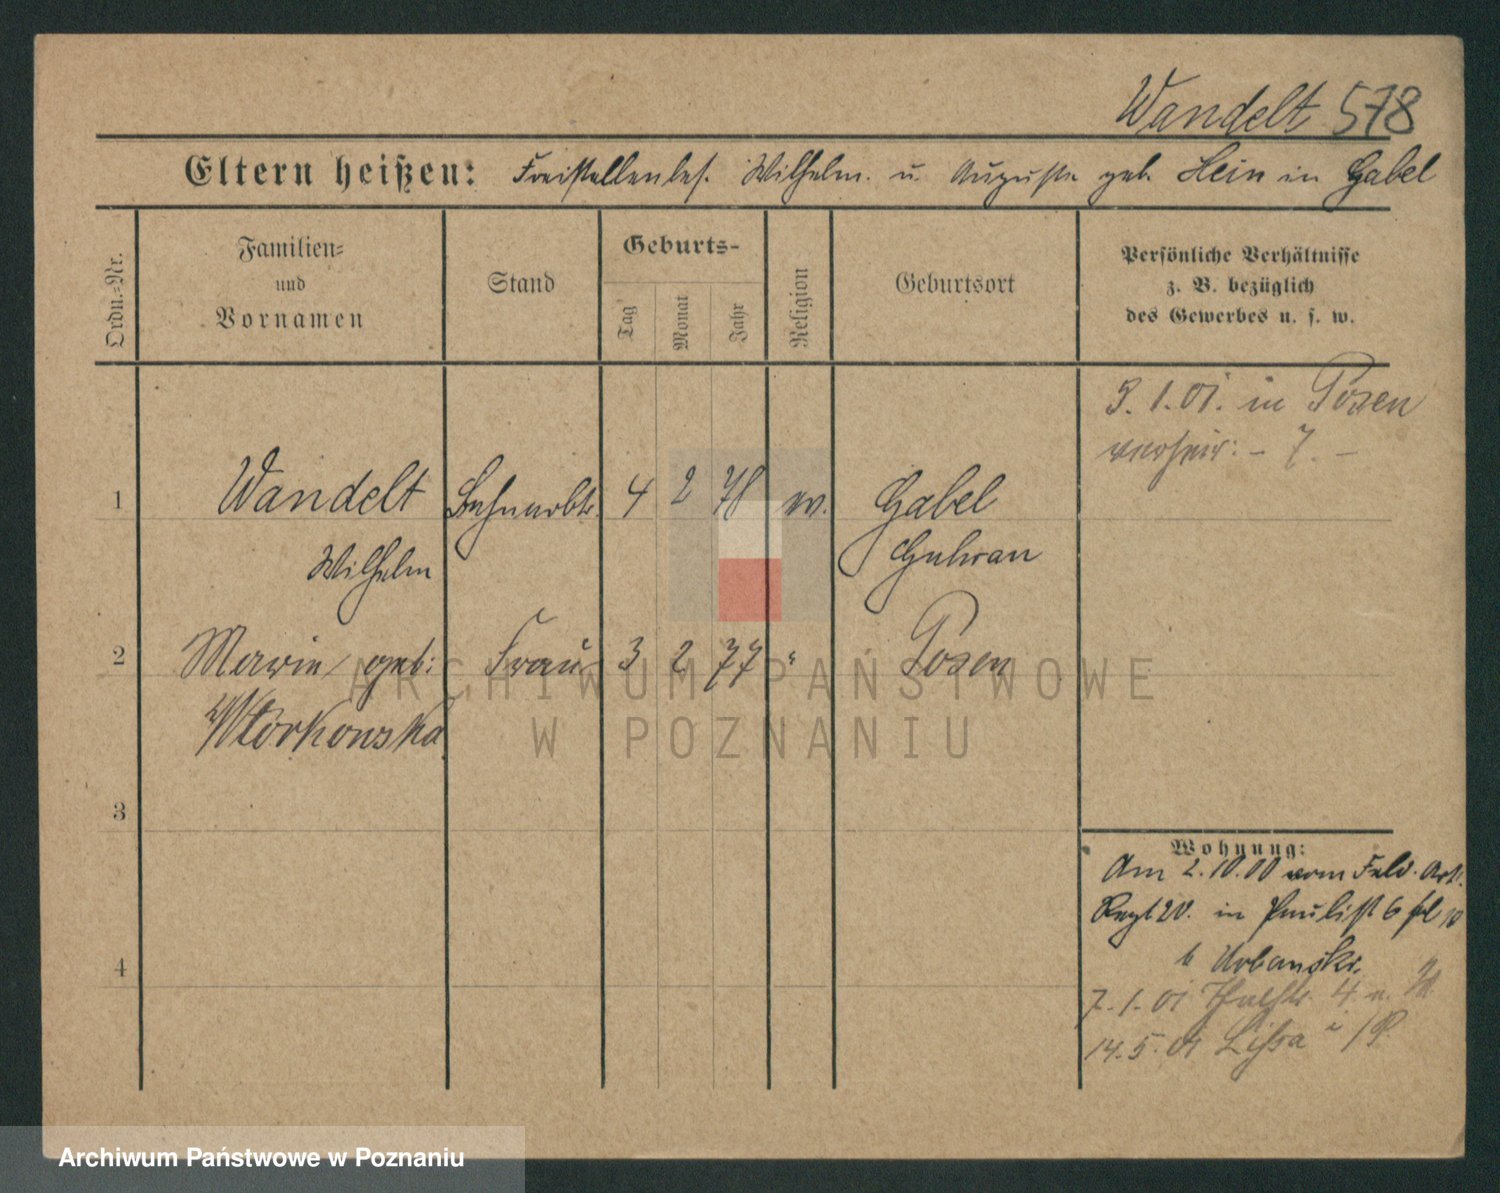 Wandelt 578
Eltern heißen: Freistellenbes. Wilhelm u. Auguste geb. Hein in Gabel
Ordn.=Nr.
Familien=
und
Vornamen
Stand
Geburts-
Tag
Monat
Jahr
Religion
Geburtsort
Persönliche Verhältnisse
z. B. bezüglich
des Gewerbes u. s. w.
3. 1. 01. in Posen
verheir: - 7. -
1 Wandelt Bahnarbtr. 4 2 78 ev. Gabel
Wilhelm Guhrau
2 Marie geb: Frau 3 2 77 " Posen
Wtorkowska
3
4
Wohnung:
Am 2.10.00 vom Feld. Art.
Regt 20. in Paulist 6
b Urbanski
7. 1. 01 4
14. 5. 01 Lissa i/P.
ARCHIWUM PAŃSTWOWE
W POZNANIU
Archiwum Państwowe w Poznaniu